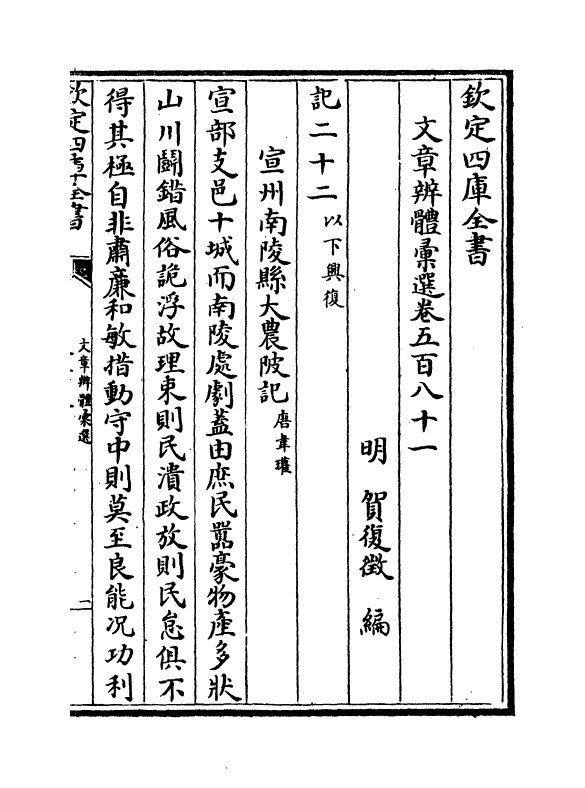 欽定四庫全書
文章辨體彙選卷五百八十一
明 賀復徵 編
記二十二 以下興復
宣州南陵縣大農陂記 唐韋瓘
宣部支邑十城而南陵處劇蓋由庶民嚚豪物產多狀
山川鬭錯風俗詭浮故理束則民潰政放則民怠俱不
得其極自非肅廉和敏措動守中則莫至良能况功利
欽定四庫全書
文章辨體彙選